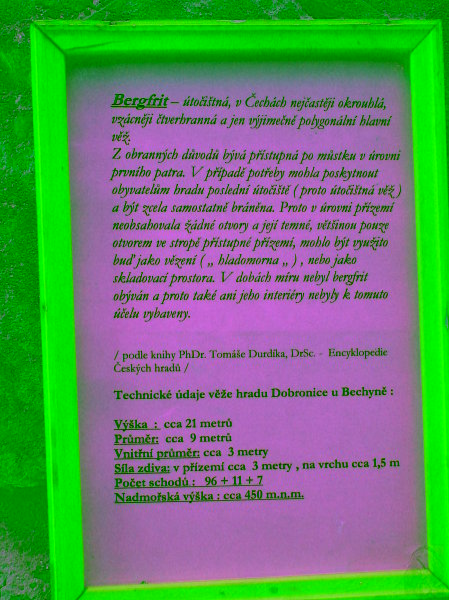 Bergfrit – útočištná, v Čechách nejčastěji okrouhlá,
vzácněji čtverhranná a jen výjimečně polygonální hlavní
věž.
Z obranných důvodů bývá přístupná po můstku v úrovni
prvního patra. V případě potřeby mohla poskytnout
obyvatelům hradu poslední útočiště ( proto útočištná věž )
a být zcela samostatně bráněna. Proto v úrovni přízemí
neobsahovala žádné otvory a její temné, většinou pouze
otvorem ve stropě přístupné přízemí, mohlo být využito
buď jako vězení ( „ hladomorna „ ) , nebo jako
skladovací prostora. V dobách míru nebyl bergfrit
obýván a proto také ani jeho interiéry nebyly k tomuto
účelu vybaveny.
/ podle knihy PhDr. Tomáše Durdíka, DrSc. - Encyklopedie
Českých hradů /
Technické údaje věže hradu Dobronice u Bechyně :
Výška : cca 21 metrů
Průměr: cca 9 metrů
Vnitřní průměr: cca 3 metry
Síla zdiva: v přízemí cca 3 metry , na vrchu cca 1,5 m
Počet schodů : 96 + 11 + 7
Nadmořská výška : cca 450 m.n.m.